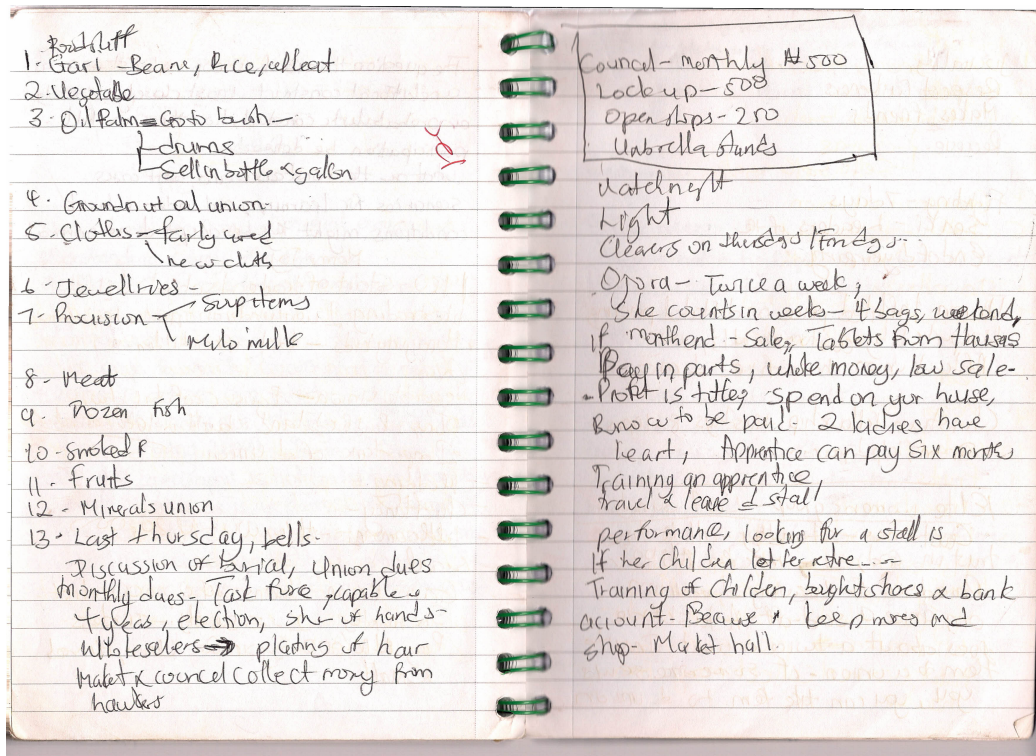 Foodstuff
1. Gari - Beans, Rice, wheat
2. Vegetable
3. Oil Palm = Go to bush -
drums
Sell in bottle & gallon
4. Groundnut oil union.
5. Cloths - fairly used
new cloths
6. Jewellries -
7. Provision - Soup items
Milo milk
8. Meat
9. Frozen Fish
10. Smoked F
11. Fruits
12. Minerals union
13. Last thursday, bells.
Discussion of burial, Union dues
Monthly dues - Task force, capable
4 years, election, show of hands -
Wholesalers → plaiting of hair
Market & council collect money from
hawkers
Council - monthly ₦500
Lock up - 500
Open shops - 250
Umbrella stands
Watchnight
Light
Cleaners on thursdays / Fridays...
Ojora - Twice a week,
She counts in weeks - 4 bags, weekend,
if month end - Sale, Tablets from Hausas
Pay in parts, whole money, low sale -
Profit is spend on your house,
to be paid. 2 ladies have
heart, Apprentice can pay six months
Training an apprentice,
travel & leave stall
performance, looking for a stall is
If her children let her retire.....
Training of Children, bought shoes & bank
account. Because keep and
shop - Market hall.